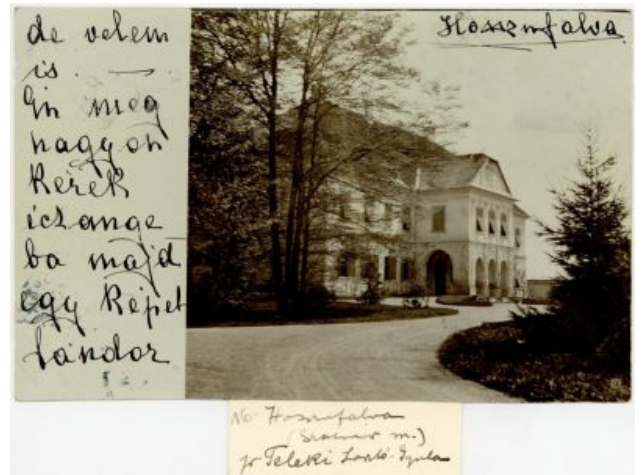 de velem
is. —
Én meg
nagyon
kérek
ichange
ba majd
egy képet
Sándor
Hosszufalva
No. Hosszufalva
(Szatmár m.)
gr Teleki László-Gyula